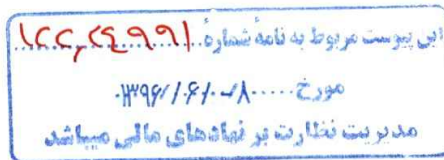 این پیوست مربوط به نامهٔ شمارهٔ ۱۲۲,۲۴۹۹۱
مورخ
مدیریت نظارت بر نهادهای مالی میباشد